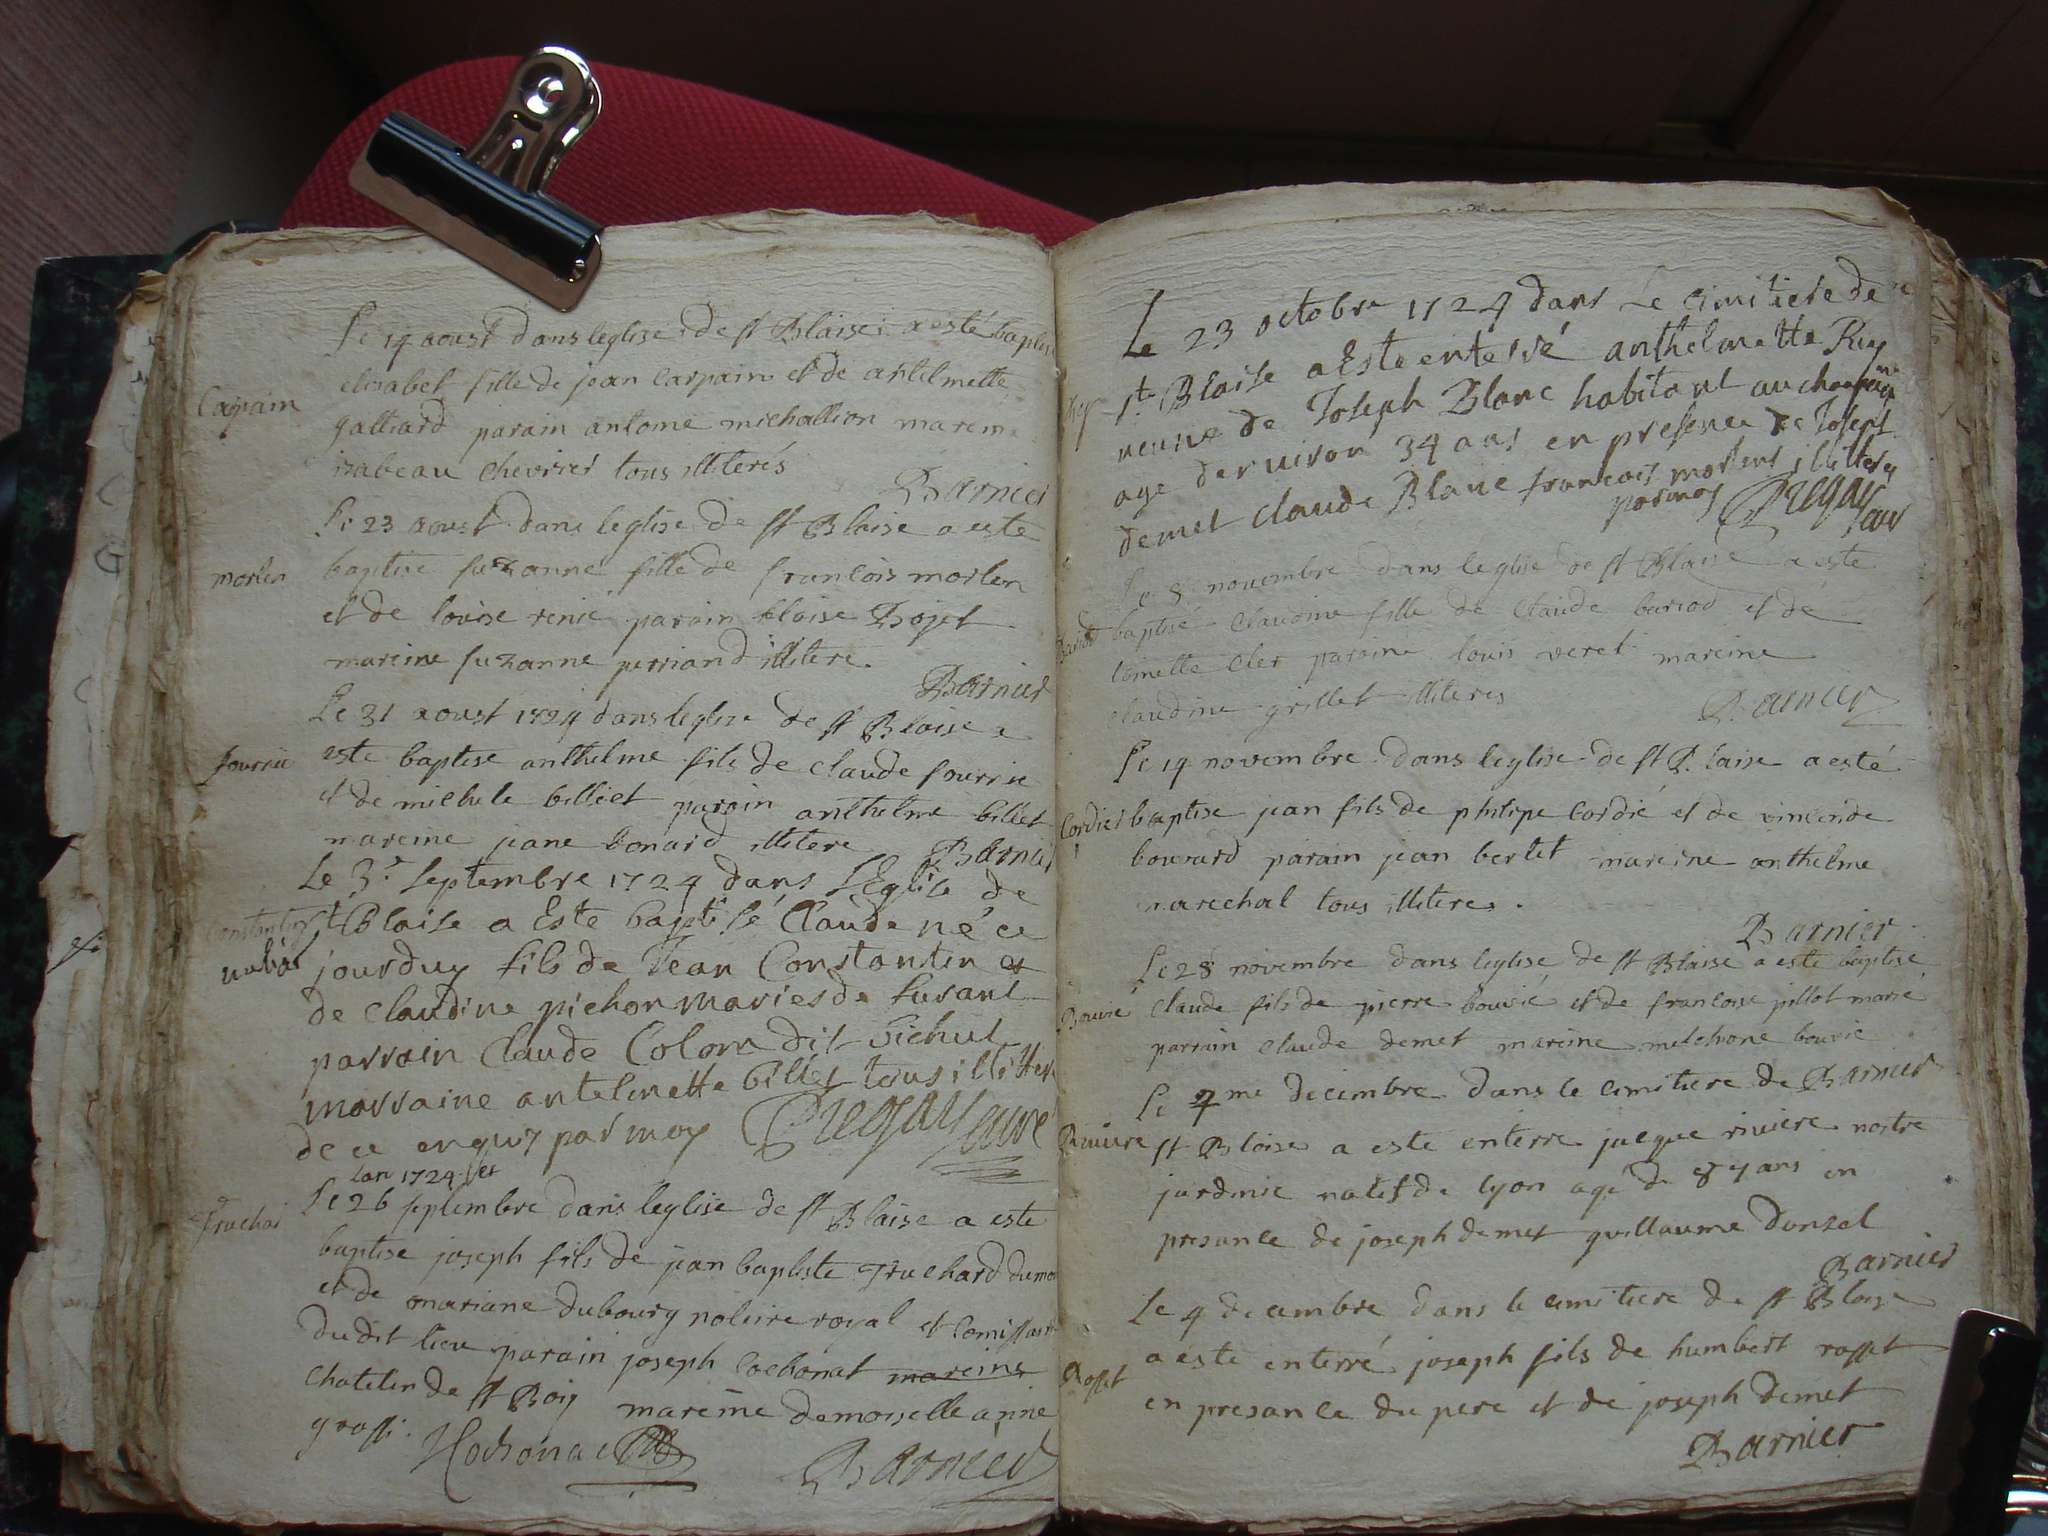 Le 14 aoust dans leglise de st Blaise a esté baptise
Carpain
elisabet fille de jean carpain et de antelmette
galliard parain antoine michallion mareine
isabeau chevrier tous illiterés
Barnier
Le 23 aoust dans leglise de st Blaise a este
morlen
baptise suzanne fille de francois morlen
et de louise renié parain blaise
mareine suzanne perriand illitere.
Barnier
Le 31 aoust 1724 dans leglise de st Blaise a
fourrie
este baptise anthelme fils de claude fourrie
et de michele billiet parain anthelme billet
mareine jeane bonard illitere
Barnier
Le 3e septembre 1724 dans l'Eglise de
Constantin
st Blaise a Esté baptisé Claude né ce
jourduy fils de Jean Constantin et
de Claudine pichon mariés de
parrain Claude Colom dit
marraine antelmette billet tous illitterés
de ce enquis par moy Pregay curé
lan 1724
Le 26 septembre dans leglise de st Blaise a este
Truchar
baptise joseph fils de jean baptiste Truchard
et de mariane dubourg notaire roial et comissaire
du dit lieu parain joseph cochonat mareine
chatelin de st Boig mareine demoiselle anne
grassi.
Barnier
Le 23 octobre 1724 dans Le cimitiere de
Rey
st Blaise a Esté enterré anthelmette Rey
veuve de Joseph Blanc habitant au
age denviron 34 ans en presence de Joseph
demet claude Blanc francois morlens illitterés
par moy Pregay curé
Le 8 novembre dans leglise de st Blaise a este
Bariod
baptisé Claudine fille de Claude bariod et de
toinette cler paraine louis veret mareine
claudine grillet illiteres
Barnier
Le 14 novembre dans leglise de st Blaise a esté
Cordier
baptise jean fils de philipe cordié et de vincende
bouvard parain jean bertet mareine anthelme
marechal tous illiteres.
Barnier
Le 28 novembre dans leglise de st Blaise a este baptise
Bouvié
claude fils de pierre bouvié et de francoise pillot marié
parrain claude demet mareine melchione bouvie
Barnier
Le 7me decembre dans le cimitiere de
Riviere
st Blaise a este enterre jacque riviere nostre
jardinie natif de lyon agé de 87 ans en
presance de joseph demet guillaume donzel
Barnier
Le 9 decembre dans le cimitiere de st Blaise
Rosset
a esté enterré joseph fils de humbert rosset
en presance du pere et de joseph demet
Barnier